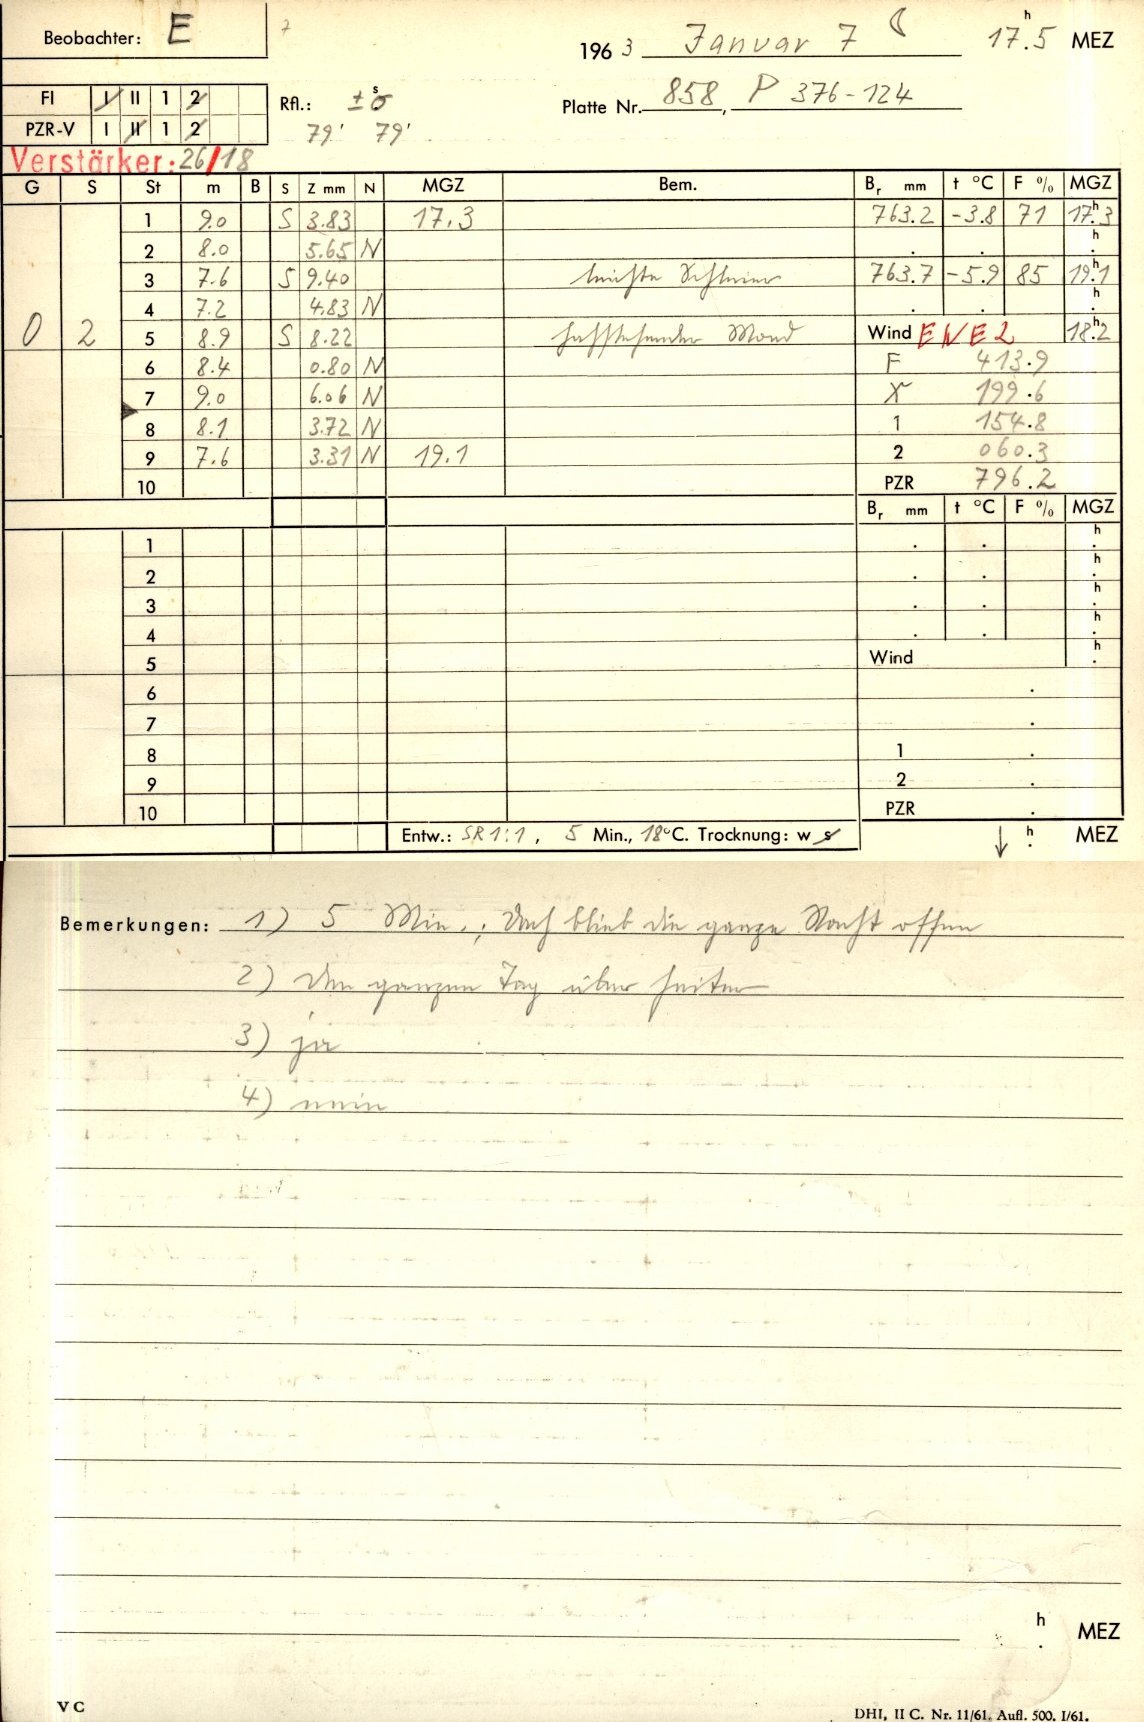 Beobachter: E
7
1963 Januar 7 ☾ 17.5 h MEZ
FI I II 1 2
Rfl.: ± σ s
Platte Nr. 858, P 376-124
PZR-V I II 1 2
79' 79'
Verstärker: 26/18
G S St m B S Z mm N MGZ Bem. Br mm t °C F % MGZ
1 9.0 S 3.83 17.3 763.2 -3.8 71 17.3 h
2 8.0 5.65 N . . h .
3 7.6 S 9.40 leichte Schleier 763.7 -5.9 85 19.1 h
4 7.2 4.83 N . . h .
0 2 5 8.9 S 8.22 hochstehender Mond Wind ENE 2 18.2 h
6 8.4 0.80 N F 413.9
7 9.0 6.06 N X 199.6
8 8.1 3.72 N 1 154.8
9 7.6 3.31 N 19.1 2 060.3
10 PZR 796.2
Br mm t °C F % MGZ
1 . . h .
2 . . h .
3 . . h .
4 . . h .
5 Wind h .
6 .
7 .
8 1 .
9 2 .
10 PZR .
Entw.: SR 1:1, 5 Min., 18°C. Trocknung: w s ↓ h . MEZ
Bemerkungen: 1) 5 Min.; Dach blieb die ganze Nacht offen
2) den ganzen Tag über heiter
3) ja
4) nein
h . MEZ
V C
DHI, II C. Nr. 11/61. Aufl. 500. I/61.